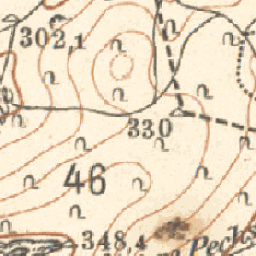 302,1
330
46
348,4